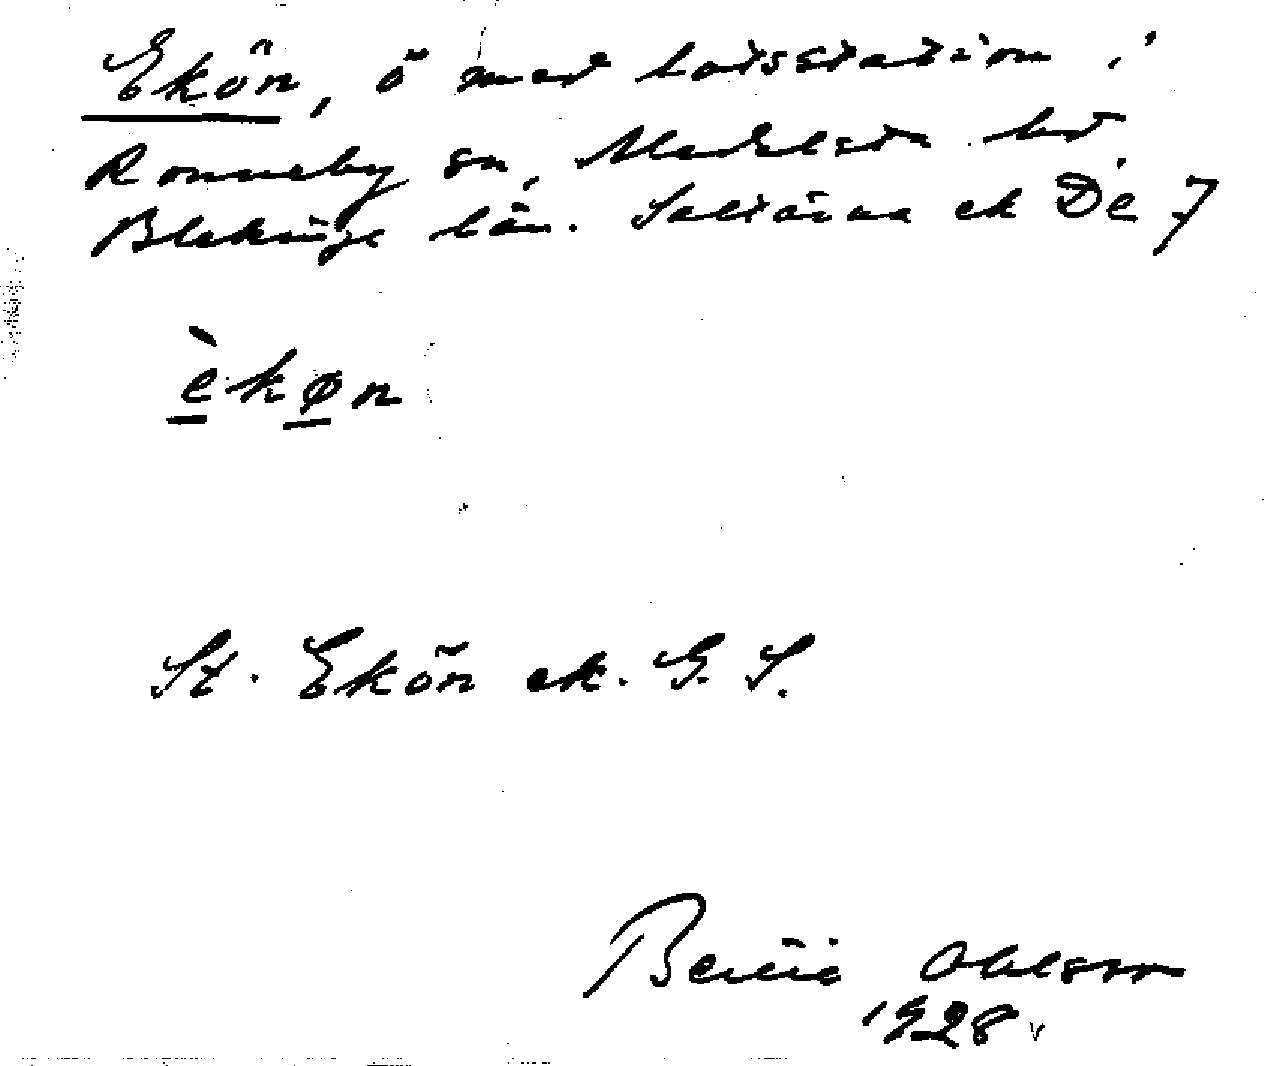 Ekön, ö med lotsstation i
Ronneby sn, Medelsta hd,
Blekinge län. Saltärna ek De 7
èkøn
St. Ekön ek. G. S.
Bertil Ohlsson
1928